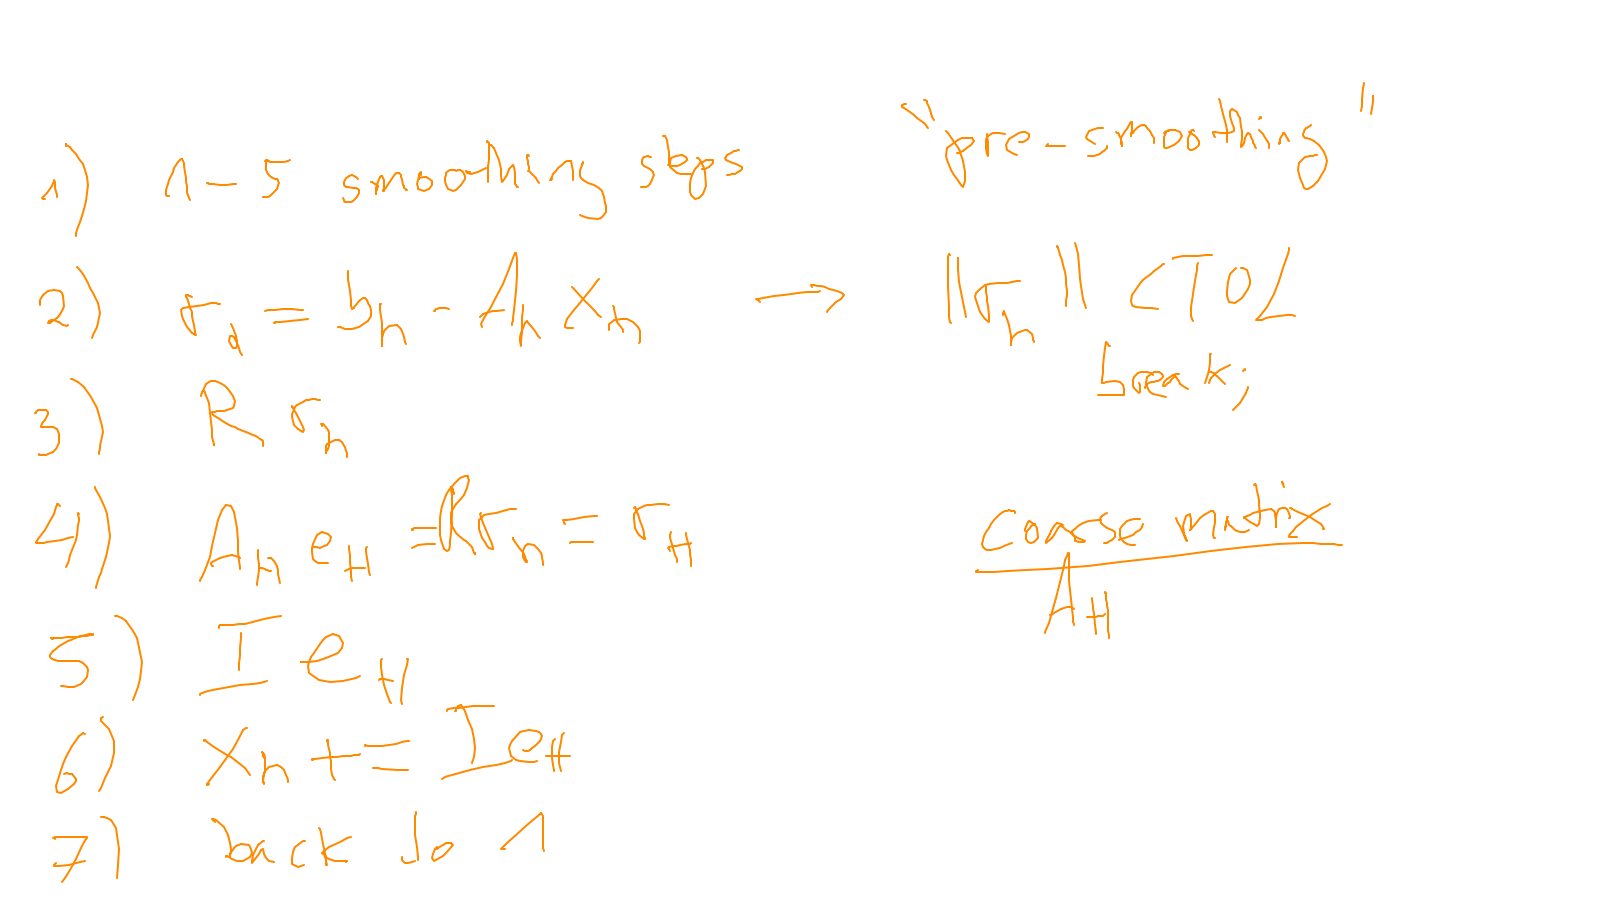 "pre-smoothing"
1) 1-5 smoothing steps
2) r_h = b_h - A_h x_h → ||r_h|| < TOL
break;
3) R r_h
4) A_h e_H = R r_h = r_H
coarse matrix
A_H
5) I e_H
6) x_h += I e_H
7) back to 1